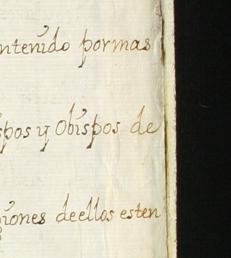 ntenido pormas
spos y Obispos de
iones deellos esten